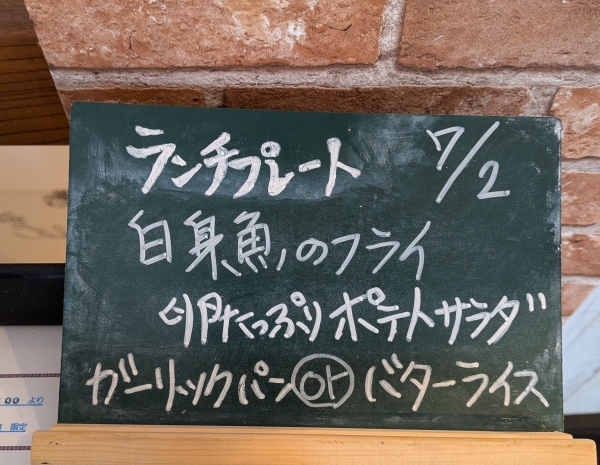 ランチプレート 7/2
白身魚のフライ
卵たっぷりポテトサラダ
ガーリックパン or バターライス
00 より
限定